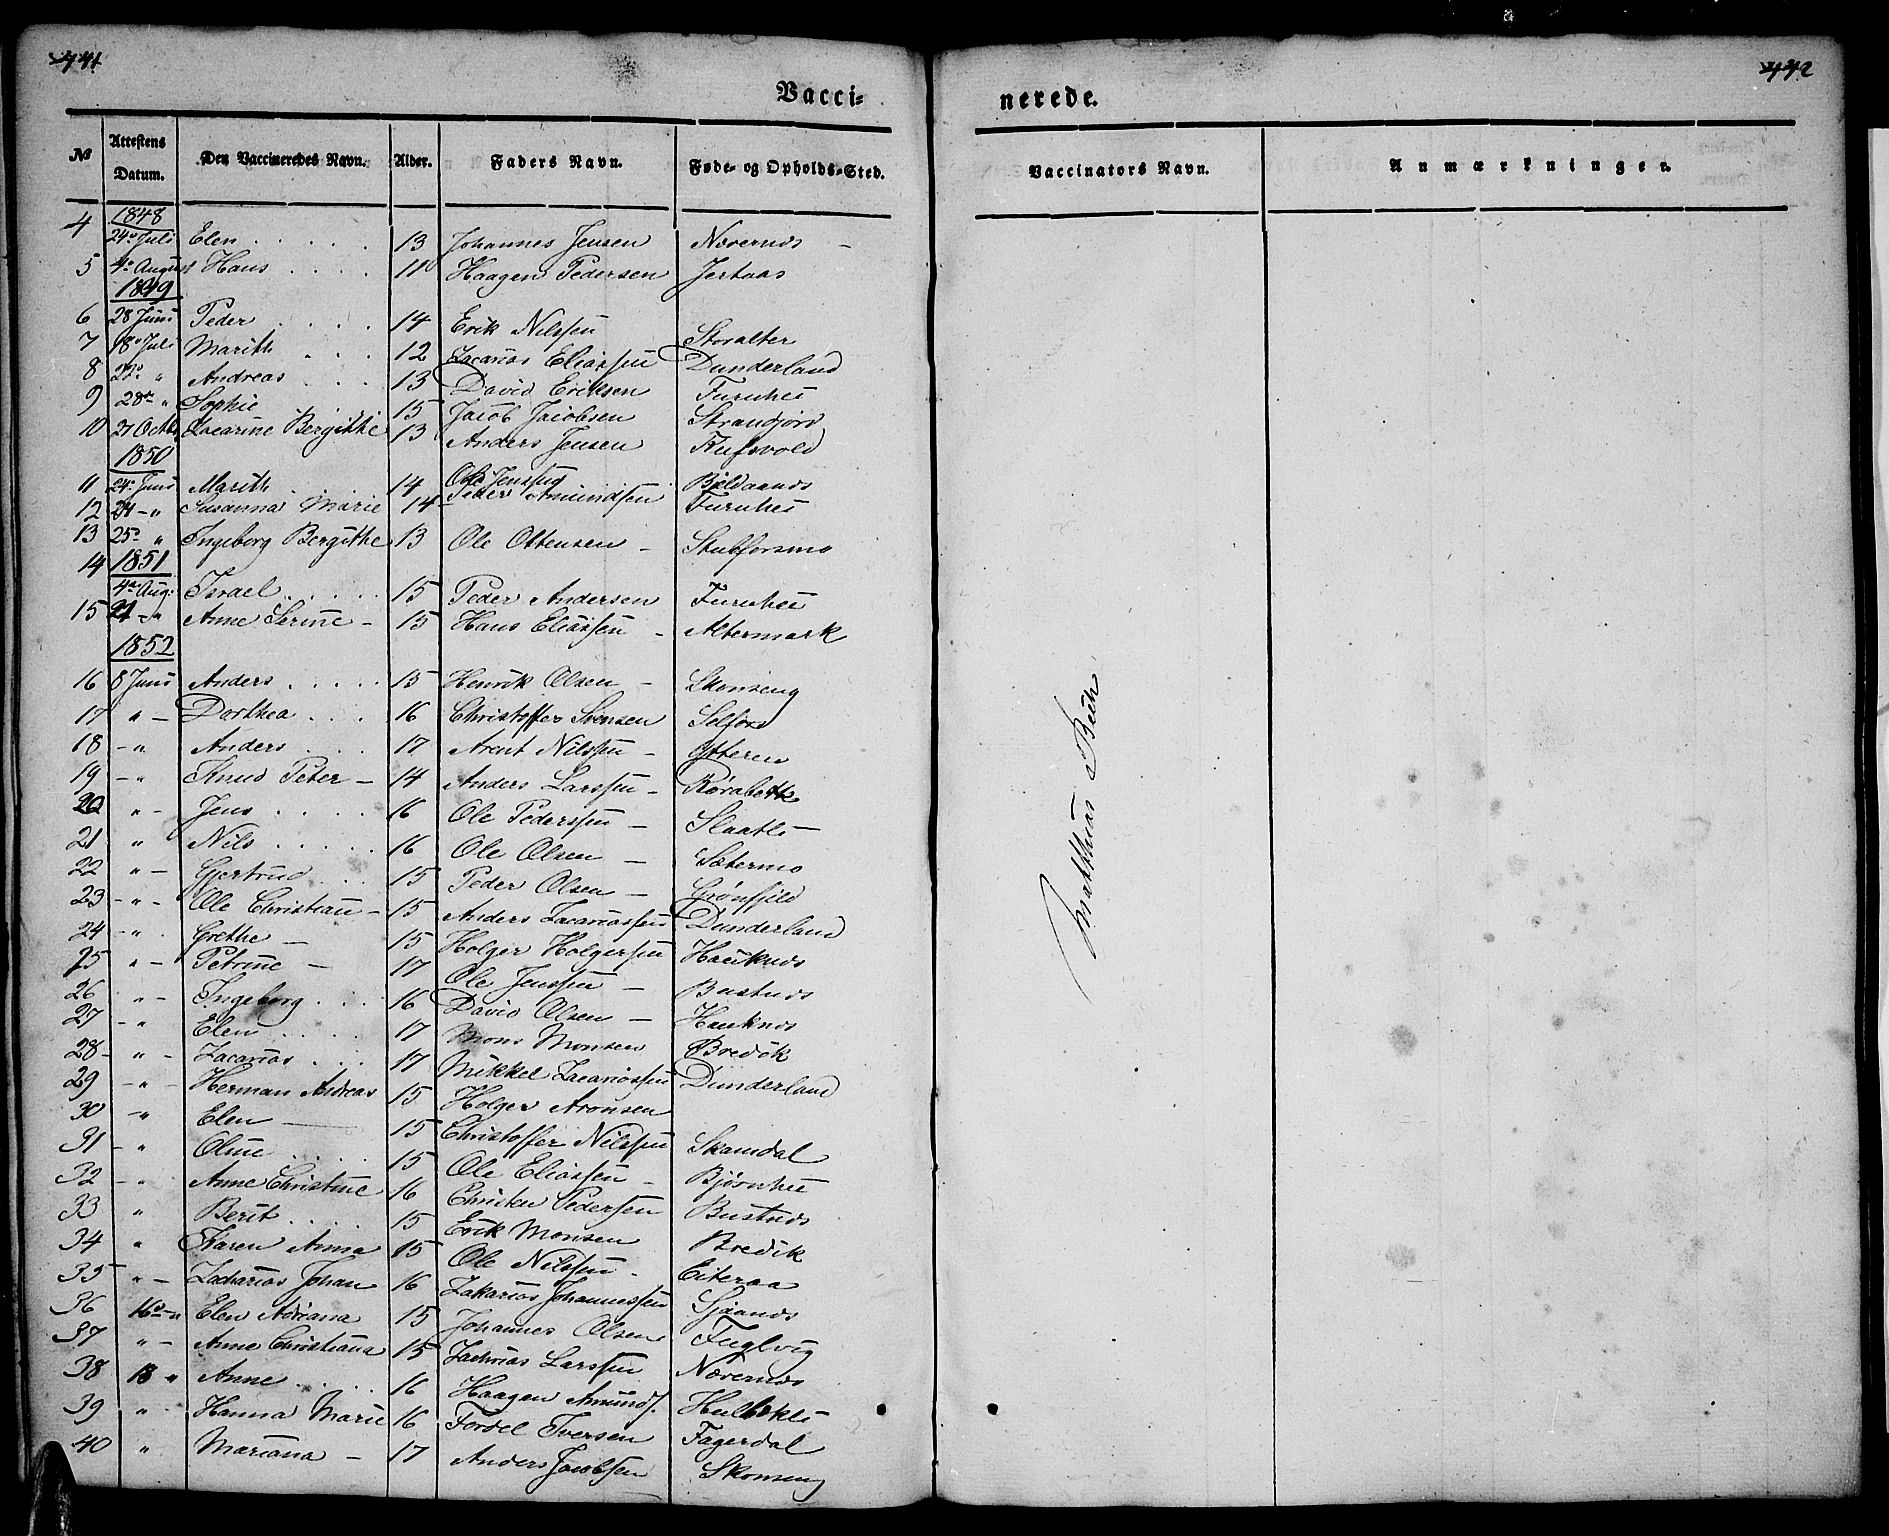 441
442
Vacci-
nerede.
№ Attestens Datum. Den Vaccineredes Navn. Alder. Faders Navn. Føde- og Opholds-Sted. Vaccinators Navn. Anmærkninger.
1848
4 24de Juli Elen 13 Johannes Jensen Nævernæs
5 4de August Hans 11 Haagen Pedersen Jertaas
1849
6 28 Juni Peder 14 Erik Nilssen Storalter
7 18de Juli Marith 12 Zacarias Eliassen Dunderland
8 22de " Andreas 13 David Eriksen Furuhei
9 28de " Sophie 15 Jacob Jacobsen Strandjord
10 27 Octb. Zacarine Bergithe 13 Anders Jensen Rufsvold
1850
11 24de Juni Marith 14 Ole Jenssen Bjeldaanæs
12 24 - " Susanna Marie 14 Peder Amundsen Furuhei
13 25de " Ingeborg Bergithe 13 Ole Ottensen - Stubforsmo
14 1851
4de Aug. Israel 15 Peder Andersen Furuhei
15 21 - " Anne Serine - 15 Hans Eliassen - Altermark
1852
16 8 Juni Anders 15 Henrik Olsen - Skonseng
17 " - Dorthea 16 Christoffer Svensen Selfors
18 - " Anders 17 Arent Nilssen - Ytteren
19 - " Knud Peter - 14 Anders Larssen - Røvabekk
20 " - Jens 16 Ole Pederssen - Slaatli -
21 " Nils 16 Ole Olsen - Sætermo
22 " - Gjertrud 15 Peder Olsen - Grønfjeld
23 - " - Ole Christian - 15 Anders Zacariassen Dunderland
24 - " Grethe - 15 Holger Holgersen Hauknæs
25 " - Petrine - 17 Ole Jenssen - Bustnæs
26 " - Ingeborg 16 David Olsen - Hauknæs
27 - " Elen 17 Mons Monsen Bredek
28 - " - Zacarias 17 Mikkel Zacariassen Dunderland
29 - " - Herman Andreas 15 Holger Aronsen
30 - " Elen 15 Christoffer Nilssen Skamdal
31 - " Oline 15 Ole Eliassen - Bjørnhei
32 - " Anne Christine 16 Christen Pedersen Bustnæs
33 " Berit 15 Erik Monsen Bredek
34 " Karen Anna 15 Ole Nilssen - Eiteraa
35 " - Zacharias Johan 16 Zakarias Johannessen Sjøanæs
36 16de - " Elen Adriana 15 Johannes Olsen Fuglvig
37 " - Anne Christiana 15 Zachrias Larssen Nævernæs
38 18 " Anne 16 Haagen Amunds. Hulbekli
39 " Hanna Marie 16 Fordel Iversen Fagerdal
40 " Mariana - 17 Anders Jacobsen Skonseng
Matthias Buch